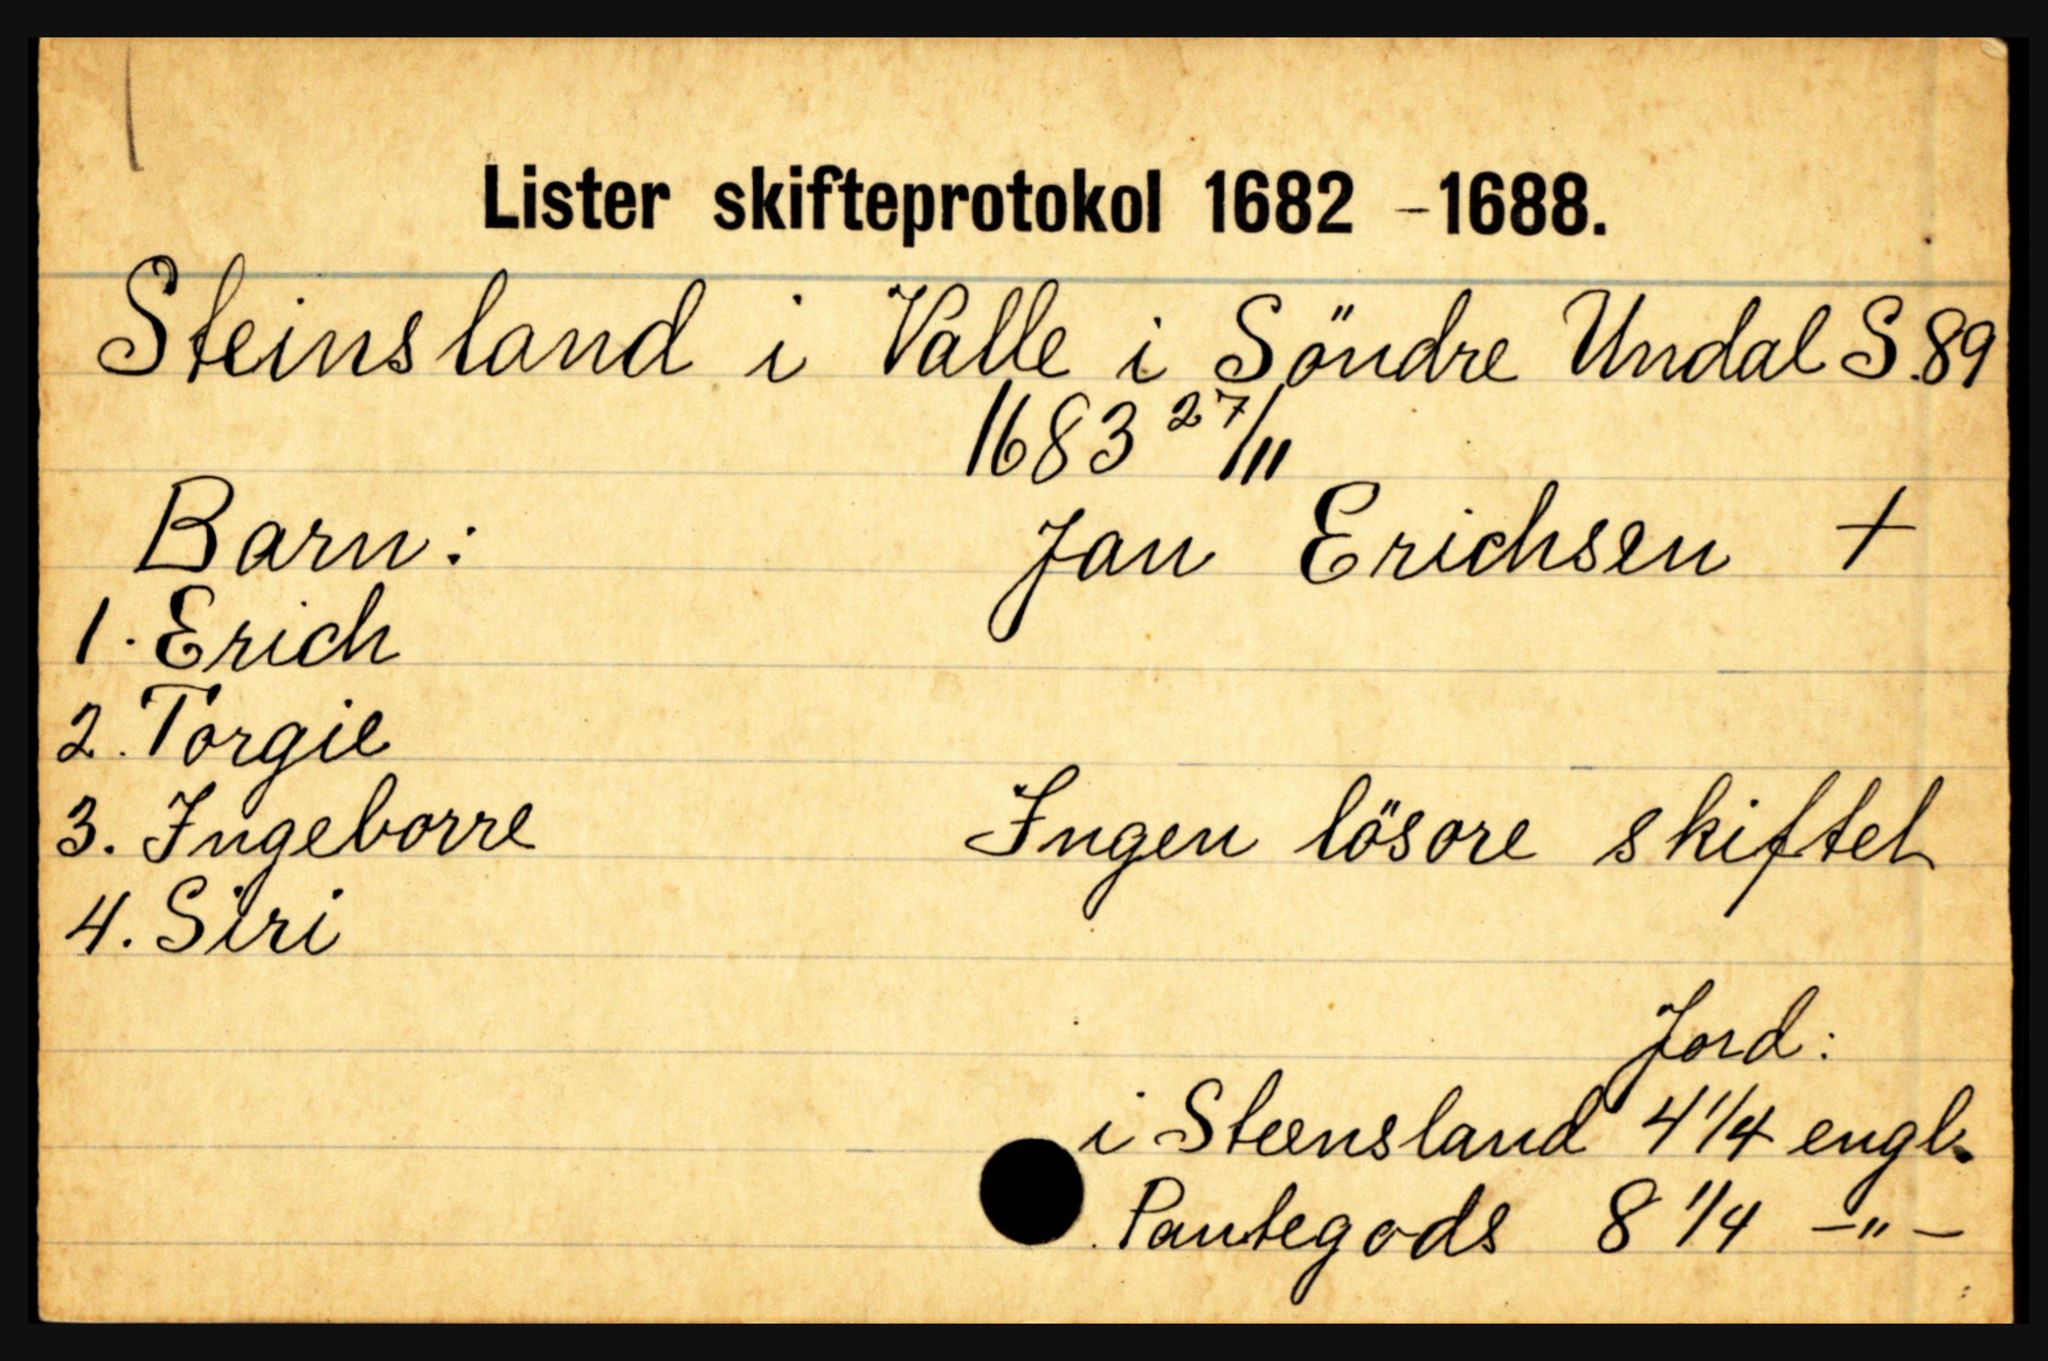 Lister skifteprotokol 1682 -1688.
Steinsland i Valle i Söndre Undal S.89
1683 27/11
Barn: Jan Erichsen +
1. Erich
2. Torgie
3. Ingeborre Ingen lösore skiftet
4. Siri
Jord:
i Steensland 4 1/4 engl.
Pantegods 8 1/4 -"-